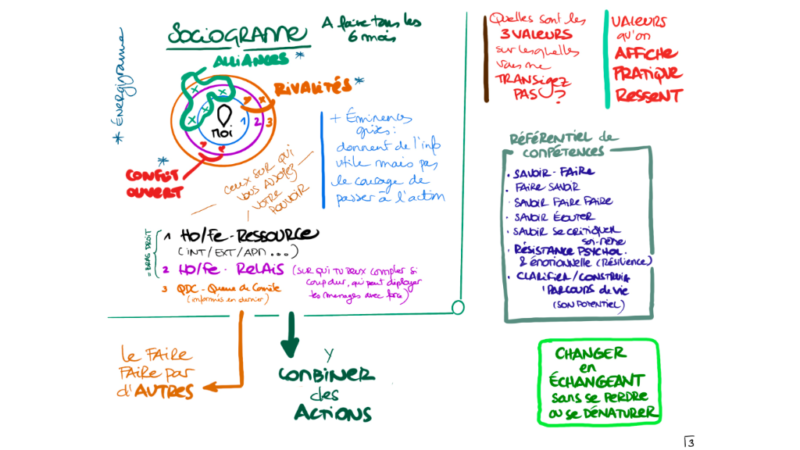 * Énergigramme
SOCIOGRAMME
A faire tous les
6 mois
ALLIANCES *
RIVALITÉS *
Moi
1 2 3
*
CONFLIT
OUVERT
+ Éminences
grises :
donnent de l'info
utile mais pas
le courage de
passer à l'action
Ceux sur qui
vous assoyez
votre
pouvoir
= BRAS DROIT
1 HO/FE - RESSOURCE
(INT/EXT/ADN ...)
2 HO/FE - RELAIS (sur qui tu peux compter si
coup dur, qui peut déployer
tes messages avec force)
3 QDC - Queue de Comète
(informés en dernier)
le FAIRE
FAIRE par
d'AUTRES
Y
COMBINER
des
ACTIONS
Quelles sont les
3 VALEURS
sur lesquelles
vous ne
TRANSIGEZ
PAS ?
VALEURS
qu'on
AFFICHE
PRATIQUE
RESSENT
RÉFÉRENTIEL de
COMPÉTENCES
• SAVOIR-FAIRE
• FAIRE SAVOIR
• SAVOIR FAIRE FAIRE
• SAVOIR ÉCOUTER
• SAVOIR SE CRITIQUER
soi-même
• RÉSISTANCE PSYCHOL.
& ÉMOTIONNELLE (Résilience)
• CLARIFIER / CONSTRUIRE
1 PARCOURS de vie
(SON POTENTIEL)
CHANGER
en
ÉCHANGEANT
sans se PERDRE
ou se DÉNATURER
3